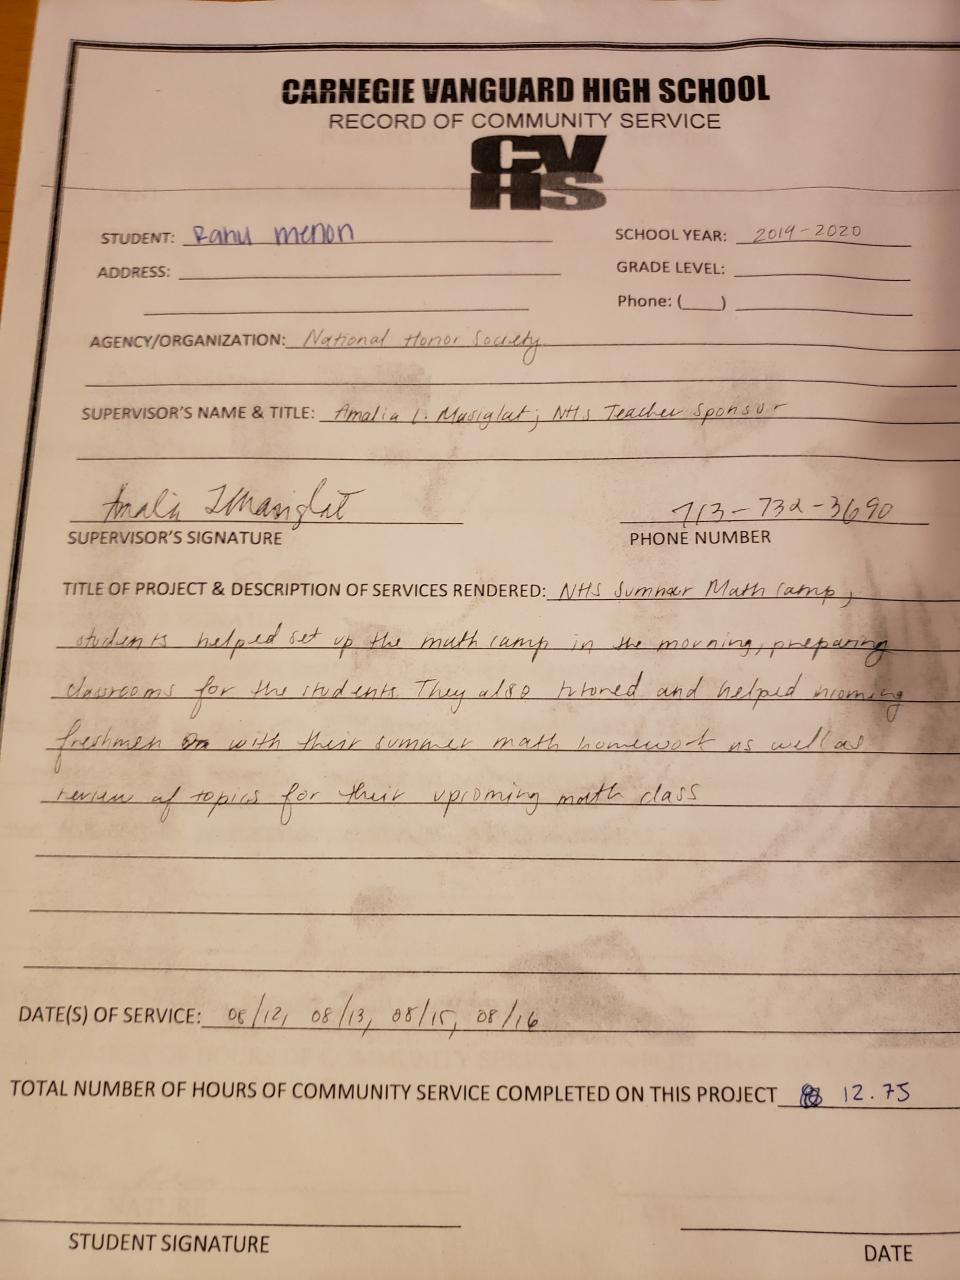 CARNEGIE VANGUARD HIGH SCHOOL
RECORD OF COMMUNITY SERVICE
CV
HS
STUDENT: Menon SCHOOL YEAR: 2019-2020
ADDRESS: GRADE LEVEL:
Phone: (___)
AGENCY/ORGANIZATION: National Honor Society
SUPERVISOR'S NAME & TITLE: Amalia L. Masiglat; NHS Teacher Sponsor
Amalia L Masiglat 713-732-3690
SUPERVISOR'S SIGNATURE PHONE NUMBER
TITLE OF PROJECT & DESCRIPTION OF SERVICES RENDERED: NHS Summer Math Camp,
students helped set up the math camp in the morning, preparing
classrooms for the students. They also tutored and helped incoming
freshmen with their summer math homework as well as
review of topics for their upcoming math class
DATE(S) OF SERVICE: 08/12, 08/13, 08/15, 08/16
TOTAL NUMBER OF HOURS OF COMMUNITY SERVICE COMPLETED ON THIS PROJECT 12.75
STUDENT SIGNATURE DATE